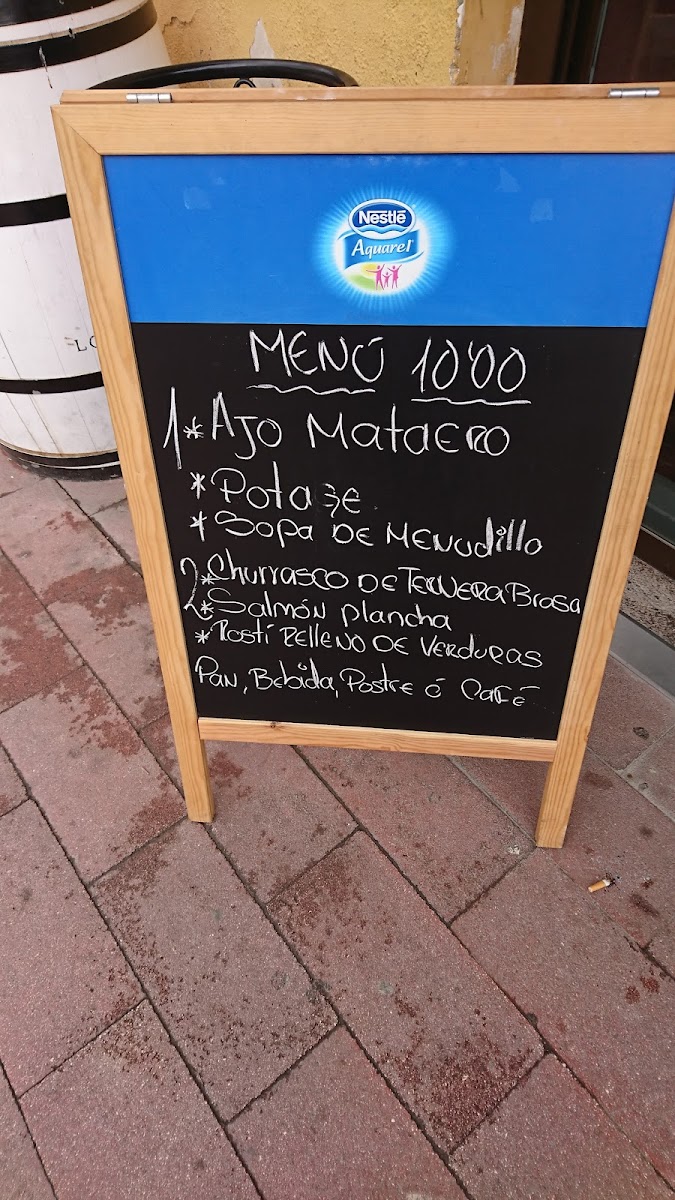 Nestlé
Aquarel
MENÚ 10'00
1* AJO MATAERO
* POTAJE
* SOPA DE MENUDILLO
2* CHURRASCO DE TERNERA BRASA
* SALMÓN PLANCHA
* ROSTÍ RELLENO DE VERDURAS
PAN, BEBIDA, POSTRE Ó CAFÉ